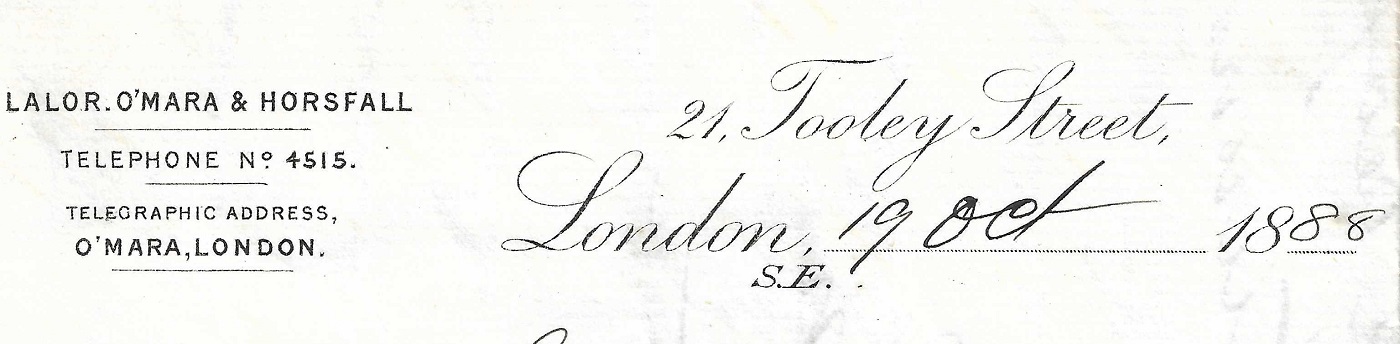 LALOR. O'MARA & HORSFALL
TELEPHONE Nº 4515.
TELEGRAPHIC ADDRESS,
O'MARA, LONDON.
21, Tooley Street,
London, 19 Oct 1888
S.E.